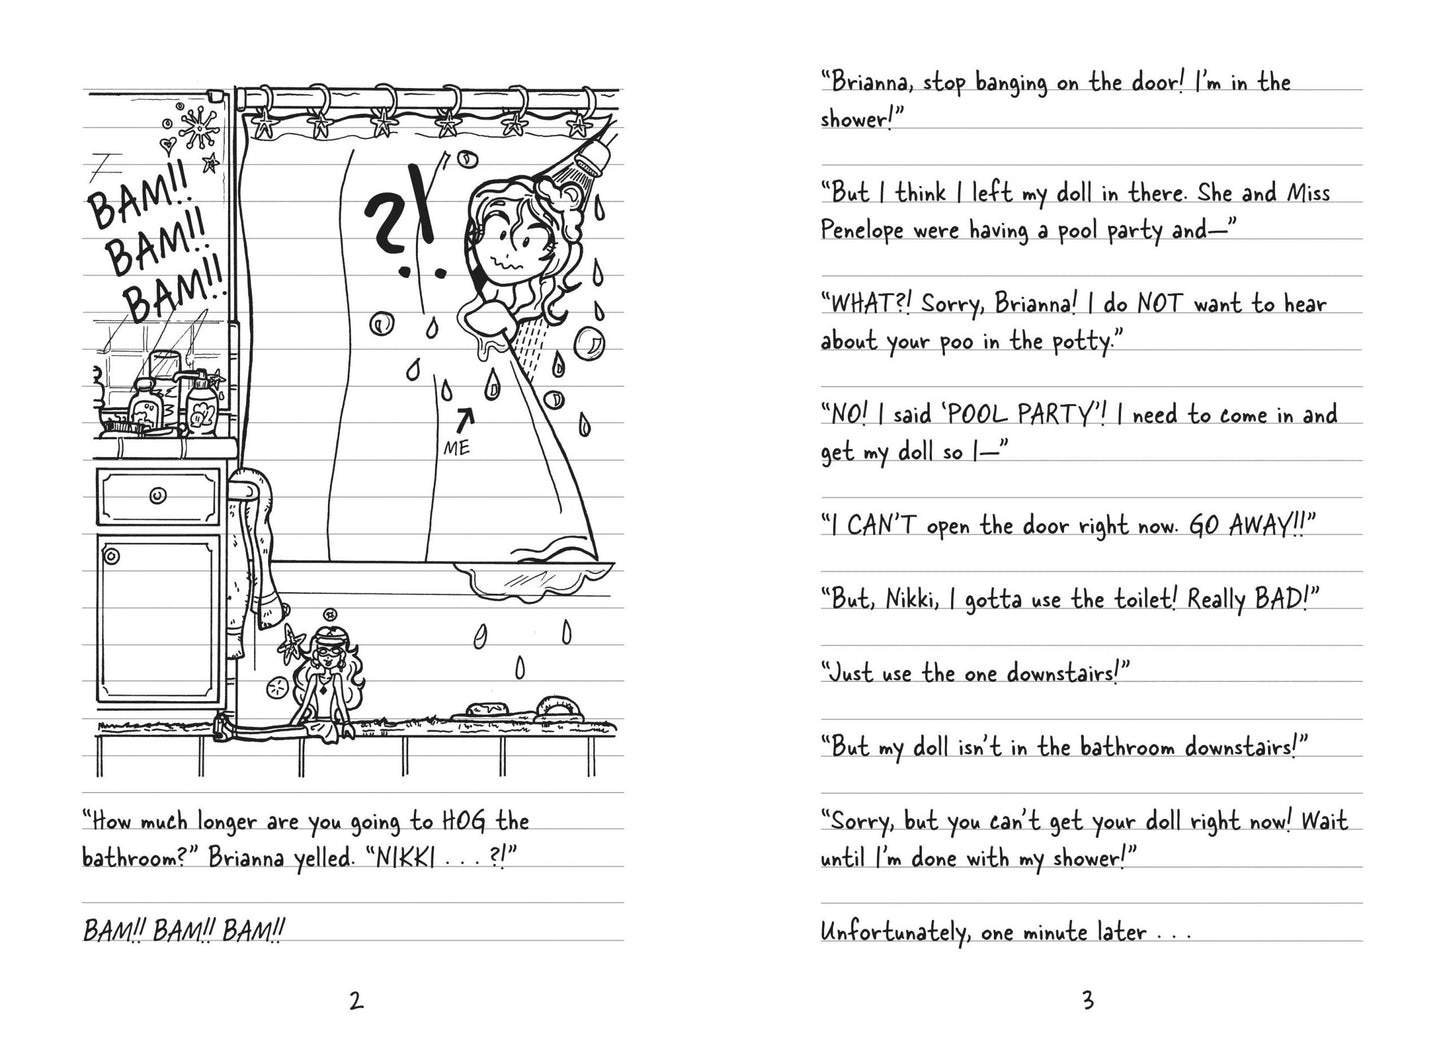 BAM!!
BAM!!
BAM!!
?!
ME
“How much longer are you going to HOG the
bathroom?” Brianna yelled. “NIKKI . . . ?!”
BAM!! BAM!! BAM!!
2
“Brianna, stop banging on the door! I’m in the
shower!”
“But I think I left my doll in there. She and Miss
Penelope were having a pool party and—”
“WHAT?! Sorry, Brianna! I do NOT want to hear
about your poo in the potty.”
“NO! I said ‘POOL PARTY’! I need to come in and
get my doll so I—”
“I CAN’T open the door right now. GO AWAY!!”
“But, Nikki, I gotta use the toilet! Really BAD!”
“Just use the one downstairs!”
“But my doll isn’t in the bathroom downstairs!”
“Sorry, but you can’t get your doll right now! Wait
until I’m done with my shower!”
Unfortunately, one minute later . . .
3